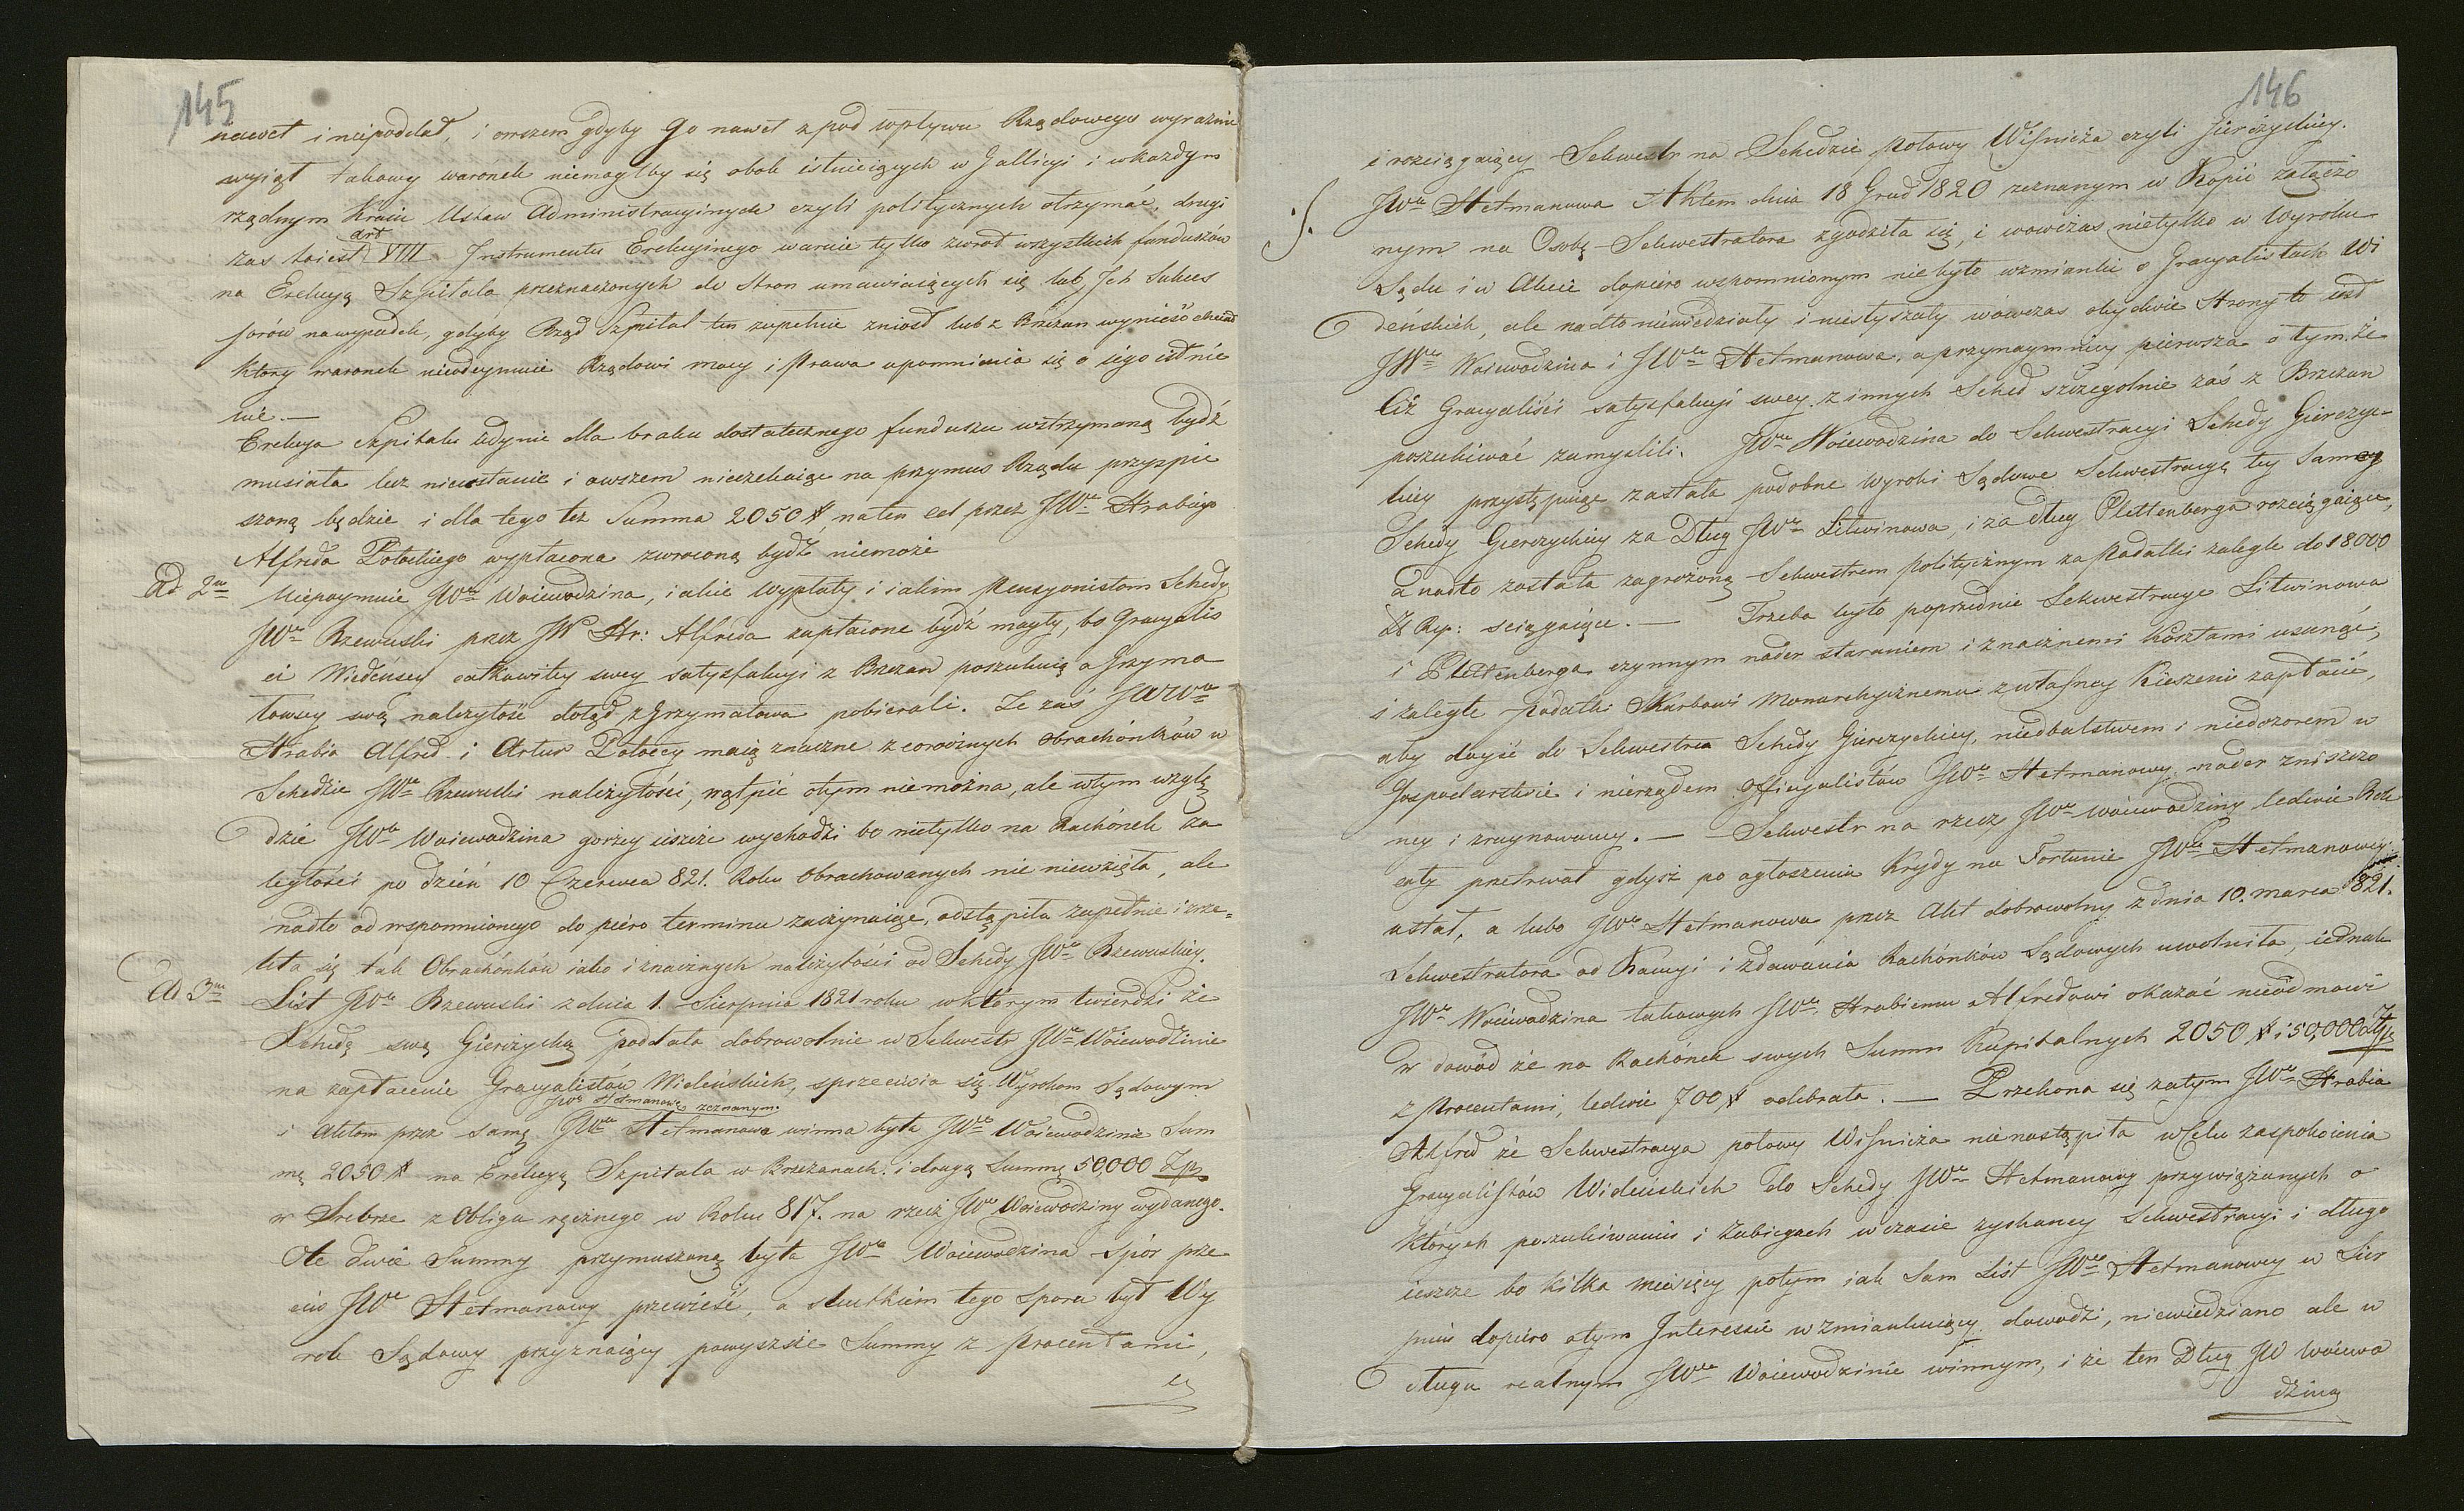 145
nawet i niepoddał, i owszem gdyby go nawet z pod wpływu Rządowego wyraźnie
wyiął takowy warónek niemogłby się obok istnieiących w Gallicyi i wkażdym
rządnym Kraiu Ustaw Administracyinych czyli politycznych otrzymać, drugi
art
zas toiest VIII Instrumentu Erekcyinego warnie tylko zwrot wszystkich funduszów
na Erekcyą Szpitala przeznaczonych do Stron umawiaiących się lub Jch Sukces
sorów nawypadek, gdyby Rząd Szpital ten zupełnie zniosł lub z Brzezan wynieść chciał
który waronek nieodeymuie Rządowi mocy i Prawa upomnienia się o iego istnie
nie. —
Erekcya Szpitalu iedynie dla braku dostatecznego funduszu wstrzymaną bydź
musiała lecz nieustanie i owszem nieczekaiąc na przymus Rządu przyspie
szoną będzie i dla tego też Summa 2050 # na ten cel przez JWo Hrabiego
Alfreda Potockiego wypłacona zwroconą bydź niemoże
Ad 2m Niepoymuie JWa Woiewodzina, iakie wypłaty i iakim Pensyonistom Schedy
JWa Rzewuski przez JW Hr: Alfreda zapłacone bydź mogły, bo Gracyalis
ci Wiedeńscy całkowitey swey satysfakcyi z Brzezan poszukuią a Grzyma
łowscy swą należytość dotąd z Grzymałowa pobierali. Ze zaś JWW
Hrabia Alfred i Artur Potoccy maią znaczne z corocznych obrachónków w
Schedzie JWa Rzewuski należytości, wątpić otym niemożna, ale wtym wzglę
dzie JWa Woiewodzina gorzey ieszcze wychodzi bo nietylko na Rachónek za
ległości po dzień 10 Czerwca 821. Roku obrachowanych nic niewzięła, ale
nadto od wspomnionego dopiéro terminu zaczynaiąc, odstąpiła zupełnie i zrze=
kła się tak Obrachónków iako i znacznych należytości od Schedy JWa Rzewuskiey.
Ad 3m List JWa Rzewuski z dnia 1. Sierpnia 1821 roku w którym twierdzi że
Schedę swą Gierczycką poddała dobrowolnie w Sekwestr JWa Woiewodzinie
na zapłacenie Gracyalistów Wiedeńskich, sprzeciwia się Wyrokom Sądowym
JWa Hetmanowę zeznanym.
i Aktom przez samą JWa Hetmanowa winna była JWa Woiewodzinie Sum
mę 2050 # na Erekcyą Szpitala w Brzezanach. i drugą Summę 50,000 Zp
w Srebrze z Obligu ręcznego w Roku 817. na rzecz JWa Woiewodziny wydanego.
Ote dwie Summy przymuszoną była JWa Woiewodzina Spór prze
ciw JWa Hetmanowy przewieść, a skutkiem tego sporu był Wy
rok Sądowy przyznaiący powyższe Summy z Procentami,
146
i rozciągaiący Sekwestr na Schedzie połowy Wiśnicza czyli Gierczyckiey.
JWa Hetmanowa Aktem dnia 18 Grud 1820 zeznanym w Kopii załączo
nym na Osobę Sekwestratora zgodziła się, i wowczas nietylko w Wyroku
Sądu i w Akcie dopiero wspomnionym nie było wzmianki o Gracyalistach Wi
deńskich, ale nadto niewiedziały i niesłyszały wówczas obydwie Strony to iest
JWa Woiewodzina i JWa Hetmanowa, a przynaymniey pierwsza o tym że
Ciż Gracyaliści satysfakcyi swey z innych Sched szczegolnie zaś z Brzezan
poszukiwać zamyslili. JWa Woiewodzina do Sekwestracyi Schedy Gierczyc=
kiey przystępuiąc zastała podobne wyroki Sądowe Sekwestracyą tey samey
Schedy Gierczyckiey za Dług JWa Litwinowa, i za długi Plettenberga rozciągaiące,
a nadto zastała zagrożoną Sekwestrem politycznym za Podatki zaległe do 18000
Zł Ryn: sciągaiące. — Trzeba było poprzednie Sekwestracye Litwinowa
i Plettenberga czynnym nader staraniem i znacznemi Kosztami usunąć,
i zaległe podatki Skarbowi Monarchycznemu z własney Kieszeni zapłacić,
aby doyść do Sekwestru Schedy Gierczyckiey, niedbalstwem i niedozorem w
Gospodarstwie i nierządem Officyalistów JWa Hetmanowy nader zniszczo
ney i zruynowaney. — Sekwestr na rzecz JWa Woiewodziny ledwie Rok
cały przetrwał gdyż po ogłoszeniu Krydy na Fortunie JWa Hetmanowey
ustał, a lubo JWa Hetmanowa przez Akt dobrowolny z dnia 10. marca 821.
Sekwestratora od Kaucyi i zdawania Rachónków Sądowych uwolniła, iednak
JWa Woiewodzina takowych JWu Hrabiemu Alfredowi okazać nieodmowi
w dowód że na Rachónek swych Summ Kapitalnych 2050 # i 50,000 Zp
z Procentami, ledwie 700 # odebrała. — Przekona się zatym JWy Hrabia
Alfred że Sekwestracya połowy Wiśnicza nienastąpiła w Celu zaspokoienia
Gracyalistów Wideńskich do Schedy JWa Hetmanowy przywiązanych o
których poszukiwaniu i Zabiegach w czasie zyskaney Sekwestracyi i długo
ieszcze bo kilka miesięcy potym iak sam List JWa Hetmanowey w Sier
pniu dopiéro otym Interessie wzmiankuiący dowodzi, niewiedziano ale w
długu realnym JWa Woiewodzinie winnym, i że ten Dług JW Woiewo
dzina